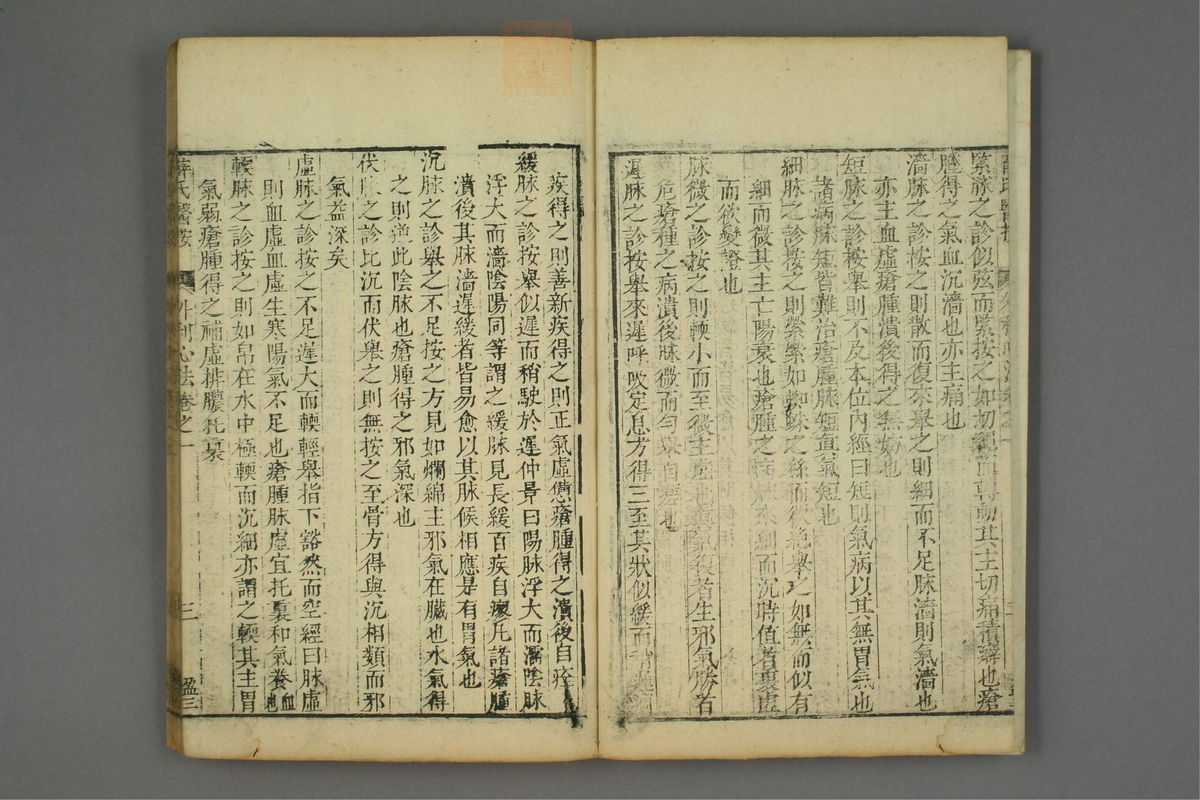 緊脉之診似弦而緊按之如切繩而尋動其主切痛積癖也瘡
腫得之氣血沉濇也亦主痛也
濇脉之診按之則散而復來舉之則細而不足脉濇則氣濇也
亦主血虛瘡腫潰後得之無妨也
短脉之診按舉則不及本位內經曰短則氣病以其無胃氣也
諸病脉短皆難治瘡腫脉短眞氣短也
細脉之診按之則縈縈如蜘蛛之絲而欲絕舉之如無而似有
細而微其主亡陽衰也瘡腫之病脉來細而沉時值者裏虛
而欲變證也
脉微之診按之則軟小而至微主虛也眞氣復者生邪氣勝者
危瘡種之病潰後脉微而勻舉自瘥也
遲脉之診按舉來遲呼吸定息方得三至其狀似緩而稍遲
疾得之則善新疾得之則正氣虛憊瘡腫得之潰後自痊
緩脉之診按舉似遲而稍駛於遲仲景曰陽脉浮大而濡陰脉
浮大而濡陰陽同等謂之緩脉見長緩百疾自瘳凡諸瘡腫
潰後其脉濇遲緩者皆易愈以其脉候相應是有胃氣也
沉脉之診舉之不足按之方見如爛綿主邪氣在臟也水氣得
之則逆此陰脉也瘡腫得之邪氣深也
伏脉之診比沉而伏舉之則無按之至骨方得與沉相類而邪
氣益深矣
虛脉之診按之不足遲大而輭輕舉指下豁然而空經曰脉虛
則血虛血虛生寒陽氣不足也瘡腫脉虛宜托裏和氣養血也
輭脉之診按之則如帛在水中極輭而沉細亦謂之輭其主胃
氣弱瘡腫得之補虛排膿托裏
薛氏醫按 外科心法卷之一 三 盈三